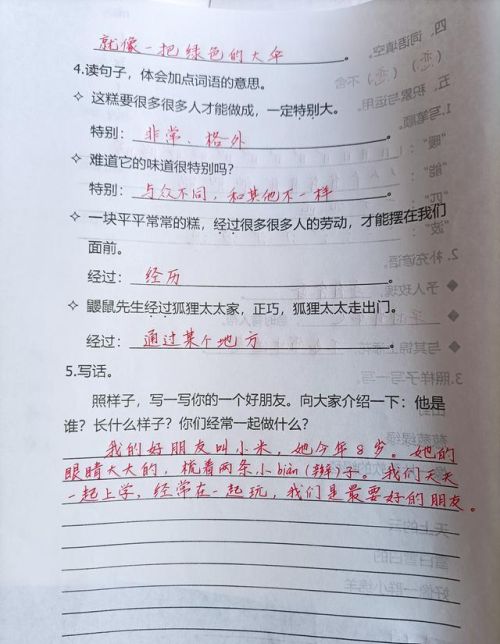 就像一把绿色的大伞。
4.读句子，体会加点词语的意思。
✧ 这糕要很多很多人才能做成，一定特别大。
特别：非常、格外。
✧ 难道它的味道很特别吗？
特别：与众不同，和其他不一样。
✧ 一块平平常常的糕，经过很多很多人的劳动，才能摆在我们
面前。
经过：经历。
✧ 鼹鼠先生经过狐狸太太家，正巧，狐狸太太走出门。
经过：通过某个地方。
5.写话。
照样子，写一写你的一个好朋友。向大家介绍一下：他是
谁？长什么样子？你们经常一起做什么？
我的好朋友叫小米，她今年8岁。她的
眼睛大大的，梳着两条小biàn(辫)子。我们天天
一起上学，经常在一起玩，我们是最要好的朋友。
四、词语填空。
(恋)(恋)不舍
五、积累与运用。
1.写笔顺。
"暖"：
"能"：
"匹"：
"波"：
2.补充谚语。
予人玫瑰，
与其锦上添花，
3.照样子写一写。